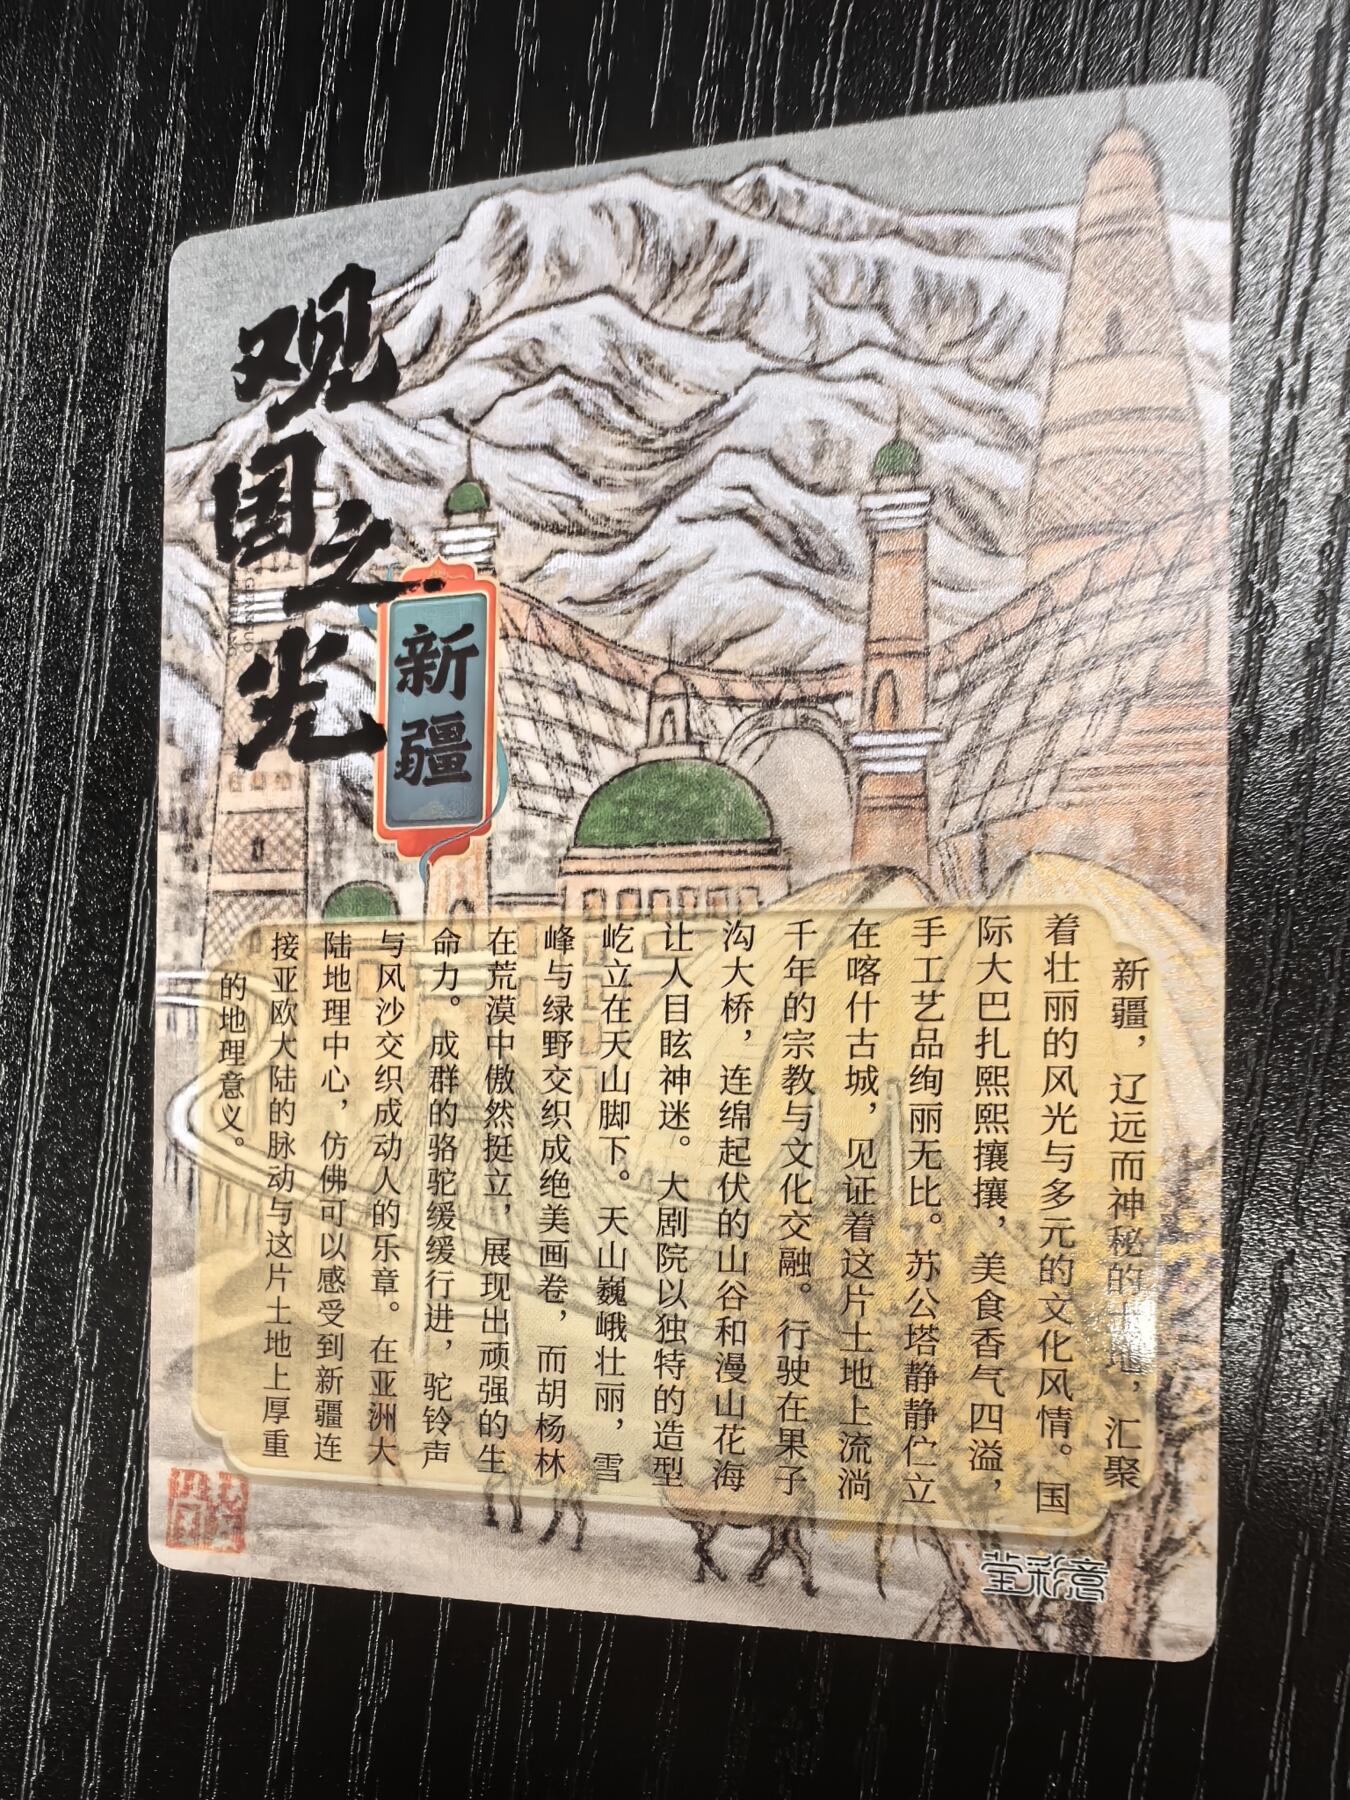 观国之光
新疆
新疆，辽远而神秘的土地，汇聚
着壮丽的风光与多元的文化风情。国
际大巴扎熙熙攘攘，美食香气四溢，
手工艺品绚丽无比。苏公塔静静伫立
在喀什古城，见证着这片土地上流淌
千年的宗教与文化交融。行驶在果子
沟大桥，连绵起伏的山谷和漫山花海
让人目眩神迷。大剧院以独特的造型
屹立在天山脚下。天山巍峨壮丽，雪
峰与绿野交织成绝美画卷，而胡杨林
在荒漠中傲然挺立，展现出顽强的生
命力。成群的骆驼缓缓行进，驼铃声
与风沙交织成动人的乐章。在亚洲大
陆地理中心，仿佛可以感受到新疆连
接亚欧大陆的脉动与这片土地上厚重
的地理意义。